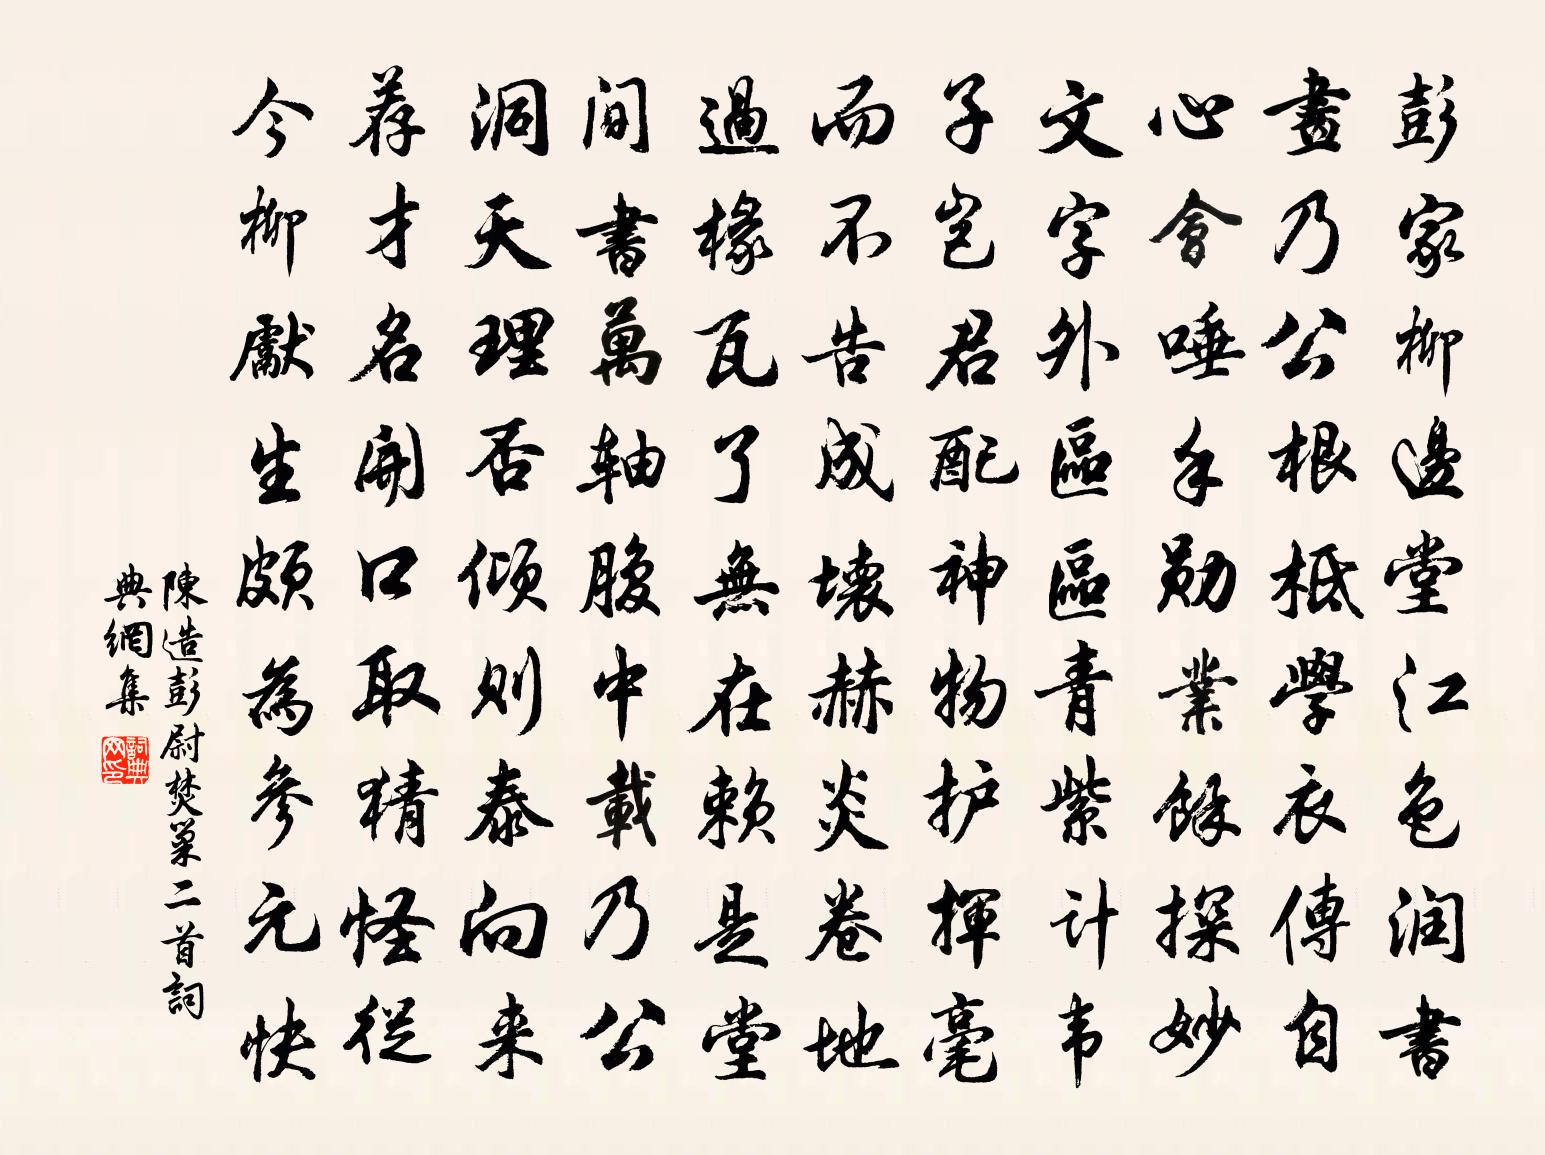 彭家柳邊堂江色润書
畫乃公根柢學衣傳自
心會唾手勋業餘探妙
文字外區區青紫计韦
子岂君配神物护揮毫
而不告成壞赫炎卷地
過椽瓦了無在赖是堂
间書萬轴腹中載乃公
洞天理否倾则泰向来
荐才名開口取猜怪從
今柳獻生頗為参元快
陳造彭尉焚巢二首詞
典網集
詞典網印